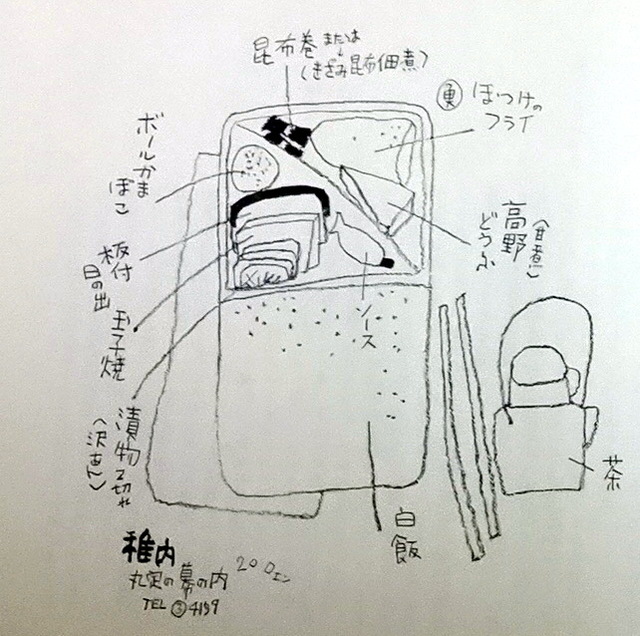 昆布巻または
(きざみ昆布佃煮)
ほっけの
フライ
ボールかま
ぼこ
高野
どうふ
(甘煮)
板付
日の出
玉子焼
ソース
漬物2切れ
(沢あん)
茶
白
飯
稚内
丸定の幕の内 200エン
TEL ③4199